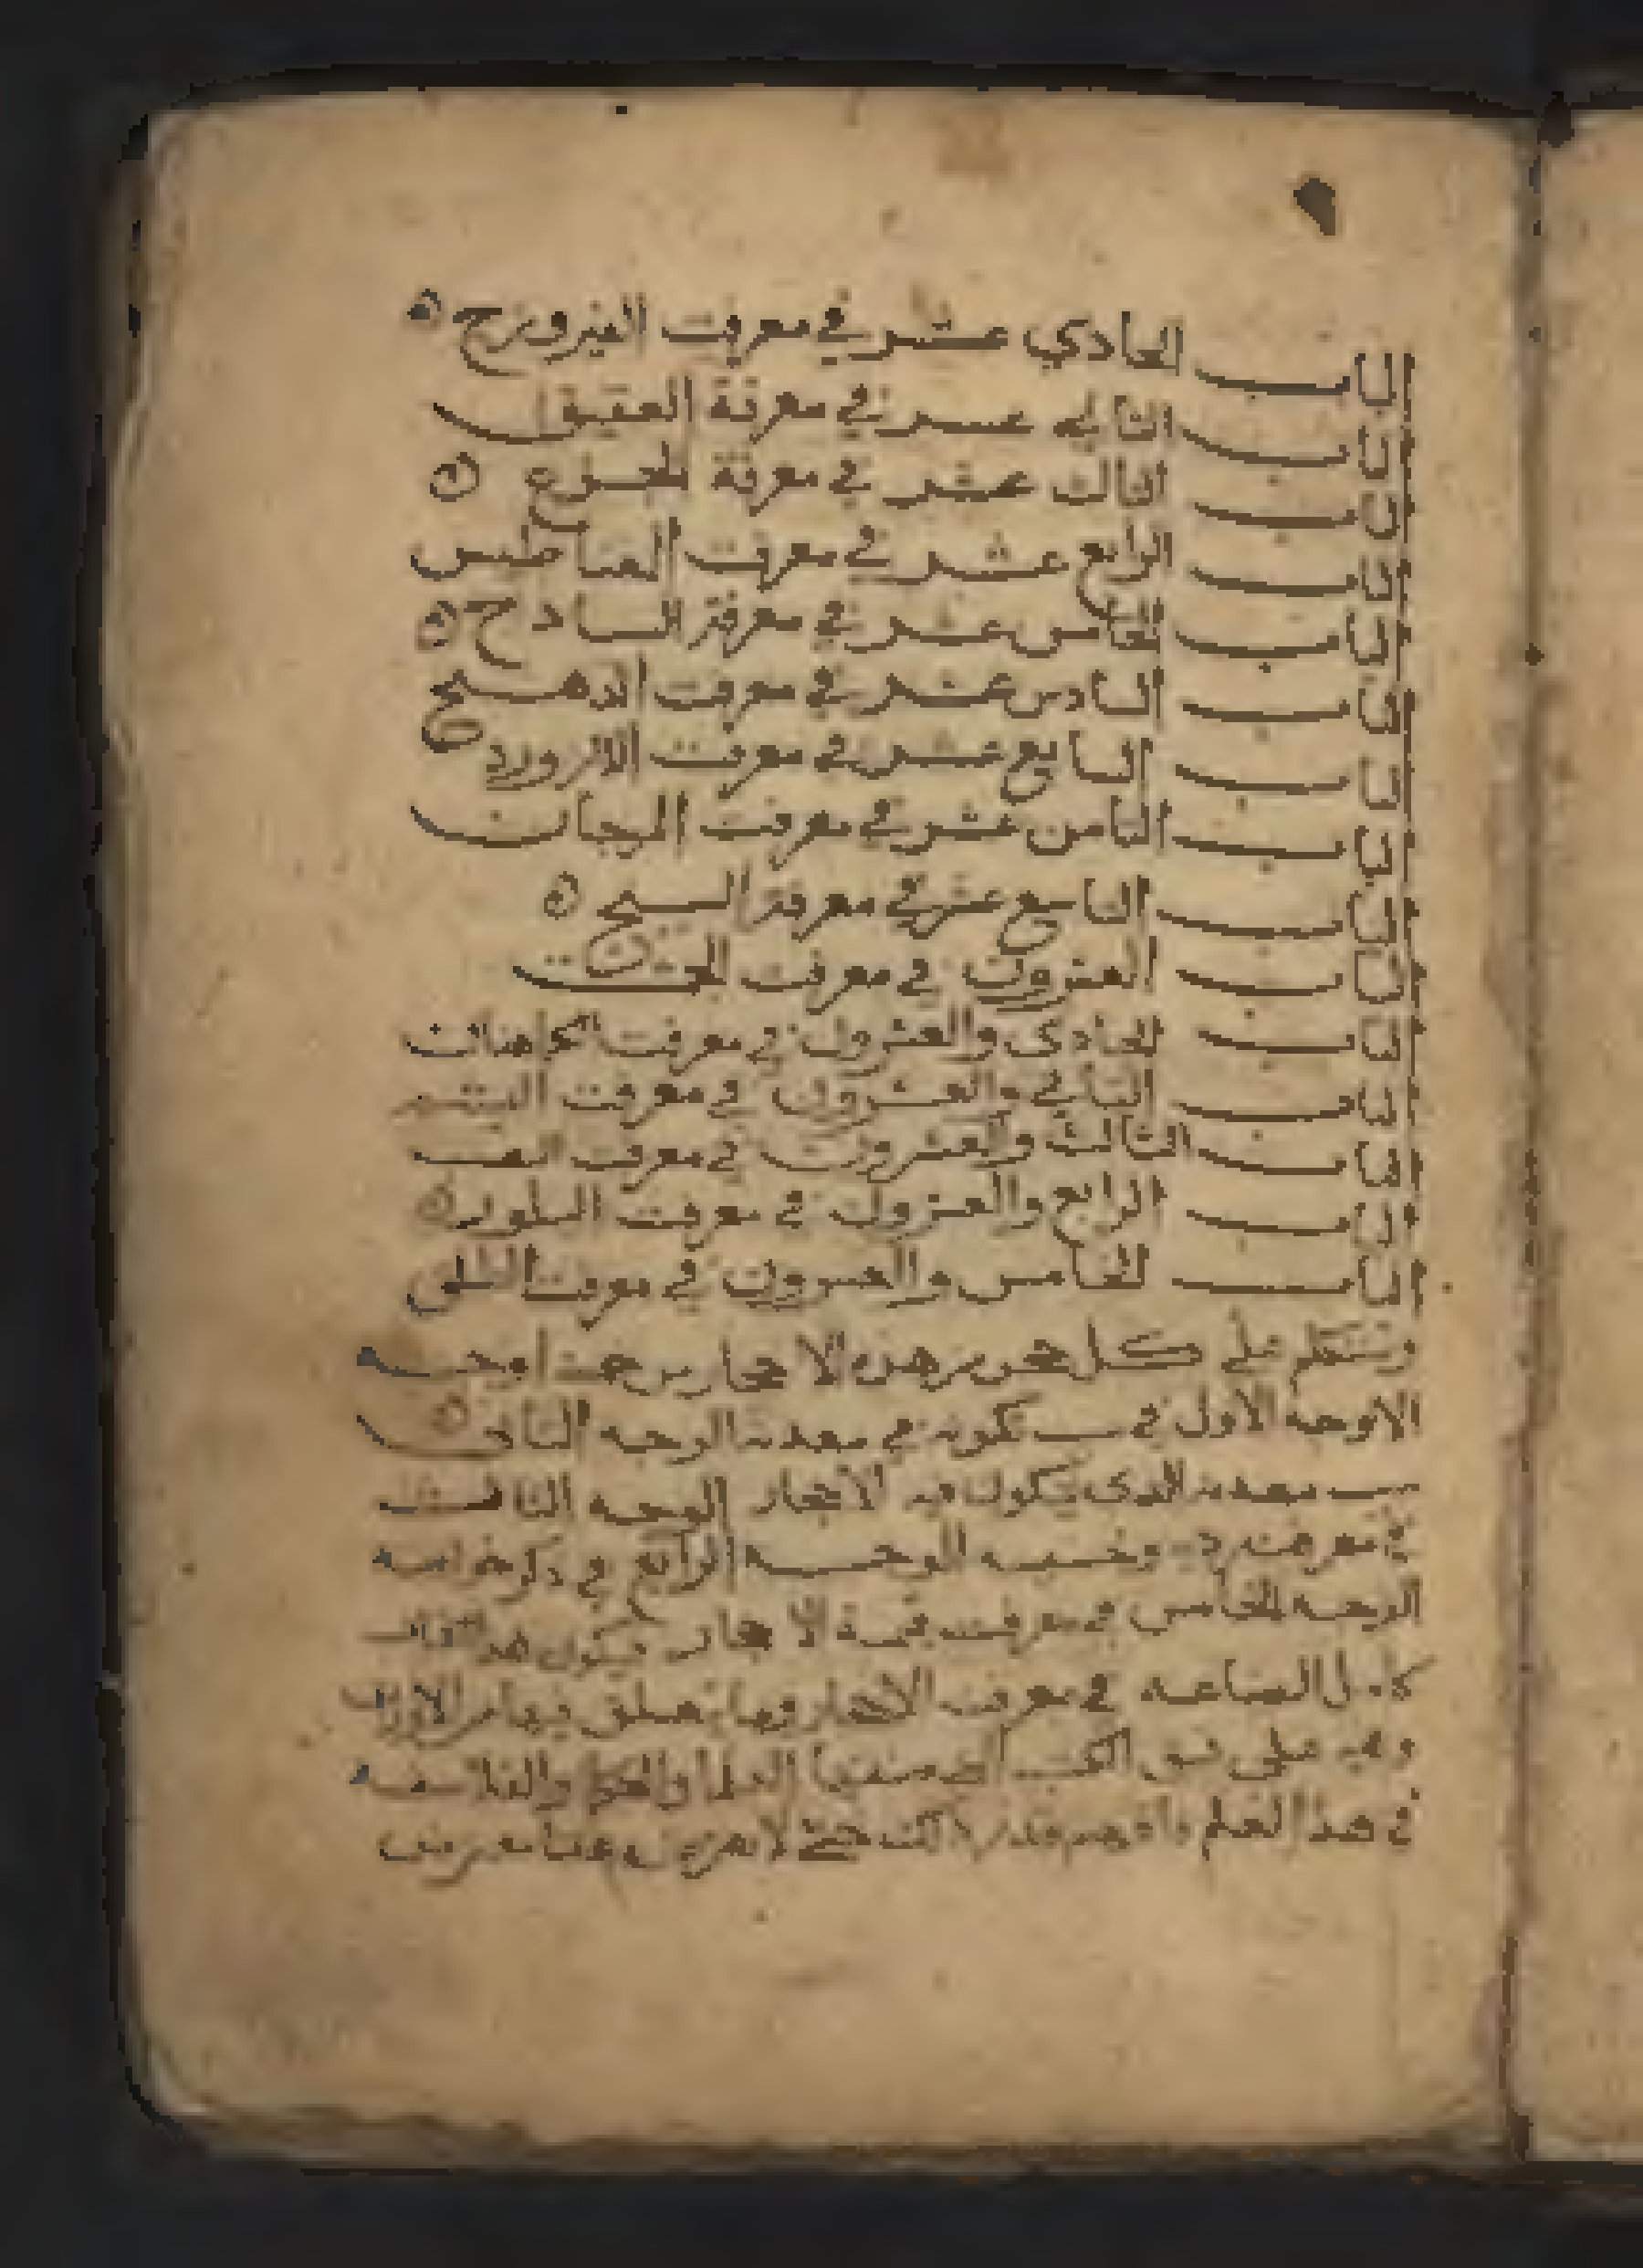 الباب الحادي عشر في معرفت الفيروزج
الباب الثاني عشر في معرفة العقيق
الباب الثالث عشر في معرفة الجزع
الباب الرابع عشر في معرفت المغناطيس
الباب الخامس عشر في معرفة السادج
الباب السادس عشر في معرفت الدهنج
الباب السابع عشر في معرفت اللازورد
الباب الثامن عشر في معرفت المرجان
الباب التاسع عشر في معرفة السبج
الباب العشرون في معرفت الجمشت
الباب الحادي والعشرون في معرفت الخماهان
الباب الثاني والعشرون في معرفت اليشم
الباب الثالث والعشرون في معرفت اليصب
الباب الرابع والعشرون في معرفت البلور
الباب الخامس والعشرون في معرفت الطلق
ونتكلم على كل حجر من هذه الاحجار من خمسة اوجه
الاوجه الاول في سبب تكونه في معدنه الوجه الثاني
معدنه الذي يتكون فيه الاحجار الوجه الثالث
في معرفته جيده الوجه الرابع في ذكر خواصه
الوجه الخامس في معرفت قيمة الاحجار فيكون هذا الكتاب
كامل الصناعه في معرفت الاحجار وما يتعلق فيها من
على نسق الكتب العلما والحكما والفلاسفه
في هذا العلم